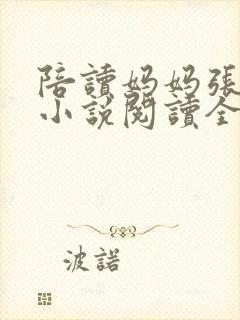 陪讀媽媽張
小說閱讀全
波諾